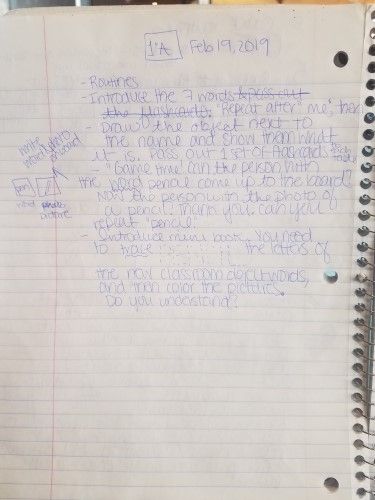 1°A Feb 19, 2019
- Routines
- Introduce the 7 words & pass out
the flashcards. "Repeat after me", then
- Draw the object next to
the name and show them what
it is. Pass out 1 set of flashcards
"Game time! Can the person with
the word pencil come up to the board?
Now the person with the photo of
a pencil? Thank you, can you all
repeat "pencil".
- Introduce mini book. You need
to trace the letters of
the new classroom object words,
and then color the pictures.
Do you understand?
write
word
photo
pen
word
picture